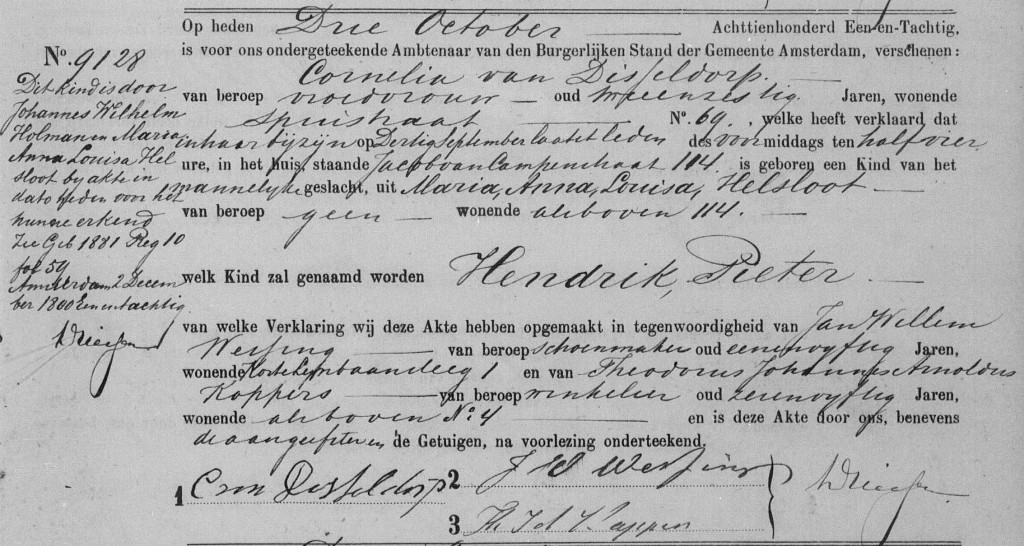 Op heden Drie October Achttienhonderd Een-en-Tachtig,
is voor ons ondergeteekende Ambtenaar van den Burgerlijken Stand der Gemeente Amsterdam, verschenen:
Cornelia van Disseldorp
van beroep vroedvrouw oud tweeenzestig Jaren, wonende
Spuistraat No. 69, welke heeft verklaard dat
in haar bijzijn op Dertig September laatstleden des voormiddags ten half vier
ure, in het huis, staande Jacob van Campenstraat 114. is geboren een Kind van het
mannelyke geslacht, uit Maria, Anna, Louisa, Helsloot
van beroep geen wonende als boven 114.
welk Kind zal genaamd worden Hendrik, Pieter
van welke Verklaring wij deze Akte hebben opgemaakt in tegenwoordigheid van Jan Willem
Wersing van beroep schoenmaker oud eenenvyftig Jaren,
wonende Korte Lynbaansteeg 1 en van Theodorus Johannes Arnoldus
Koppers van beroep winkelier oud zevenvyftig Jaren,
wonende als boven No. 4 en is deze Akte door ons, benevens
de aangeefster en de Getuigen, na voorlezing onderteekend.
1 C van Disseldorp 2 J W Wersing
3 Th Joh
No. 9128
Dit kind is door
Johannes Wilhelm
Holman en Maria
Anna Louisa Hel
sloot by akte in
dato heden voor het
hunne erkend
Zie Geb 1881 Reg 10
fol 59
Amsterdam 2 Decem
ber 1800 Eenentachtig